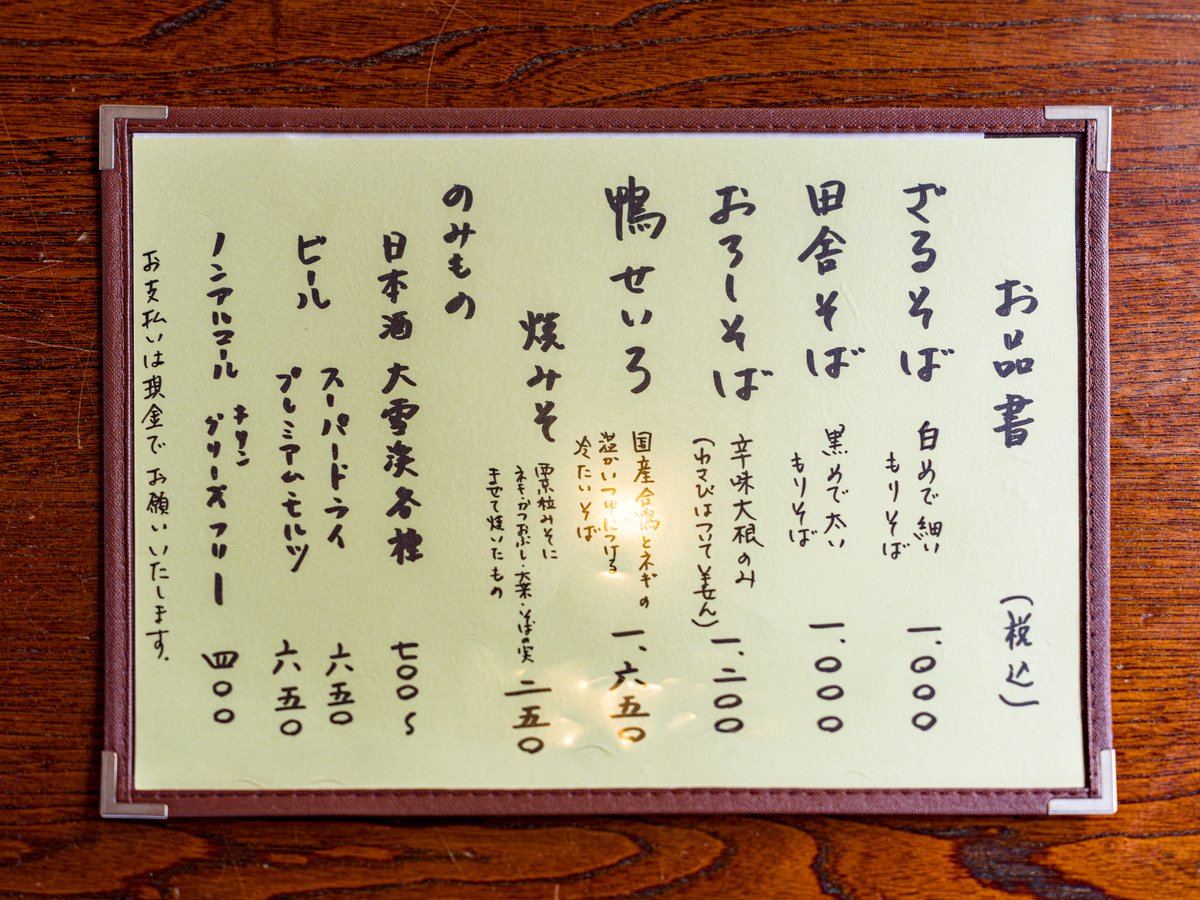 お品書 (税込)
ざるそば 白めで細い もりそば 一、〇〇〇
田舎そば 黒めで太い もりそば 一、〇〇〇
おろしそば 辛味大根のみ (わさびはついて ません) 一、二〇〇
鴨せいろ 国産合鴨とネギの 温かいつゆにつける 冷たいそば 一、六五〇
焼みそ 粟粒みそに ネギ・かつおぶし・大葉・そばの実 まぜて焼いたもの 二五〇
のみもの
日本酒 大雪渓各種 七〇〇~
ビール スーパードライ 六五〇
プレミアムモルツ 六五〇
ノンアルコール キリン グリーンズフリー 四〇〇
お支払いは現金でお願いいたします。